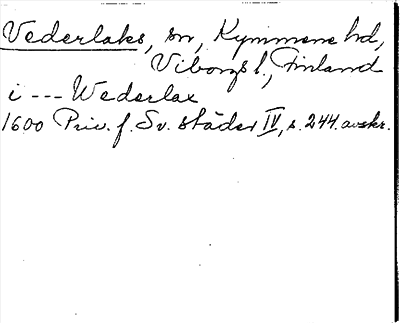 Vederlaks, sn, Kymmene hd,
Viborgs l., Finland
i --- Wederlax
1600 Priv. f. Sv. städer IV, s. 244. avskr.